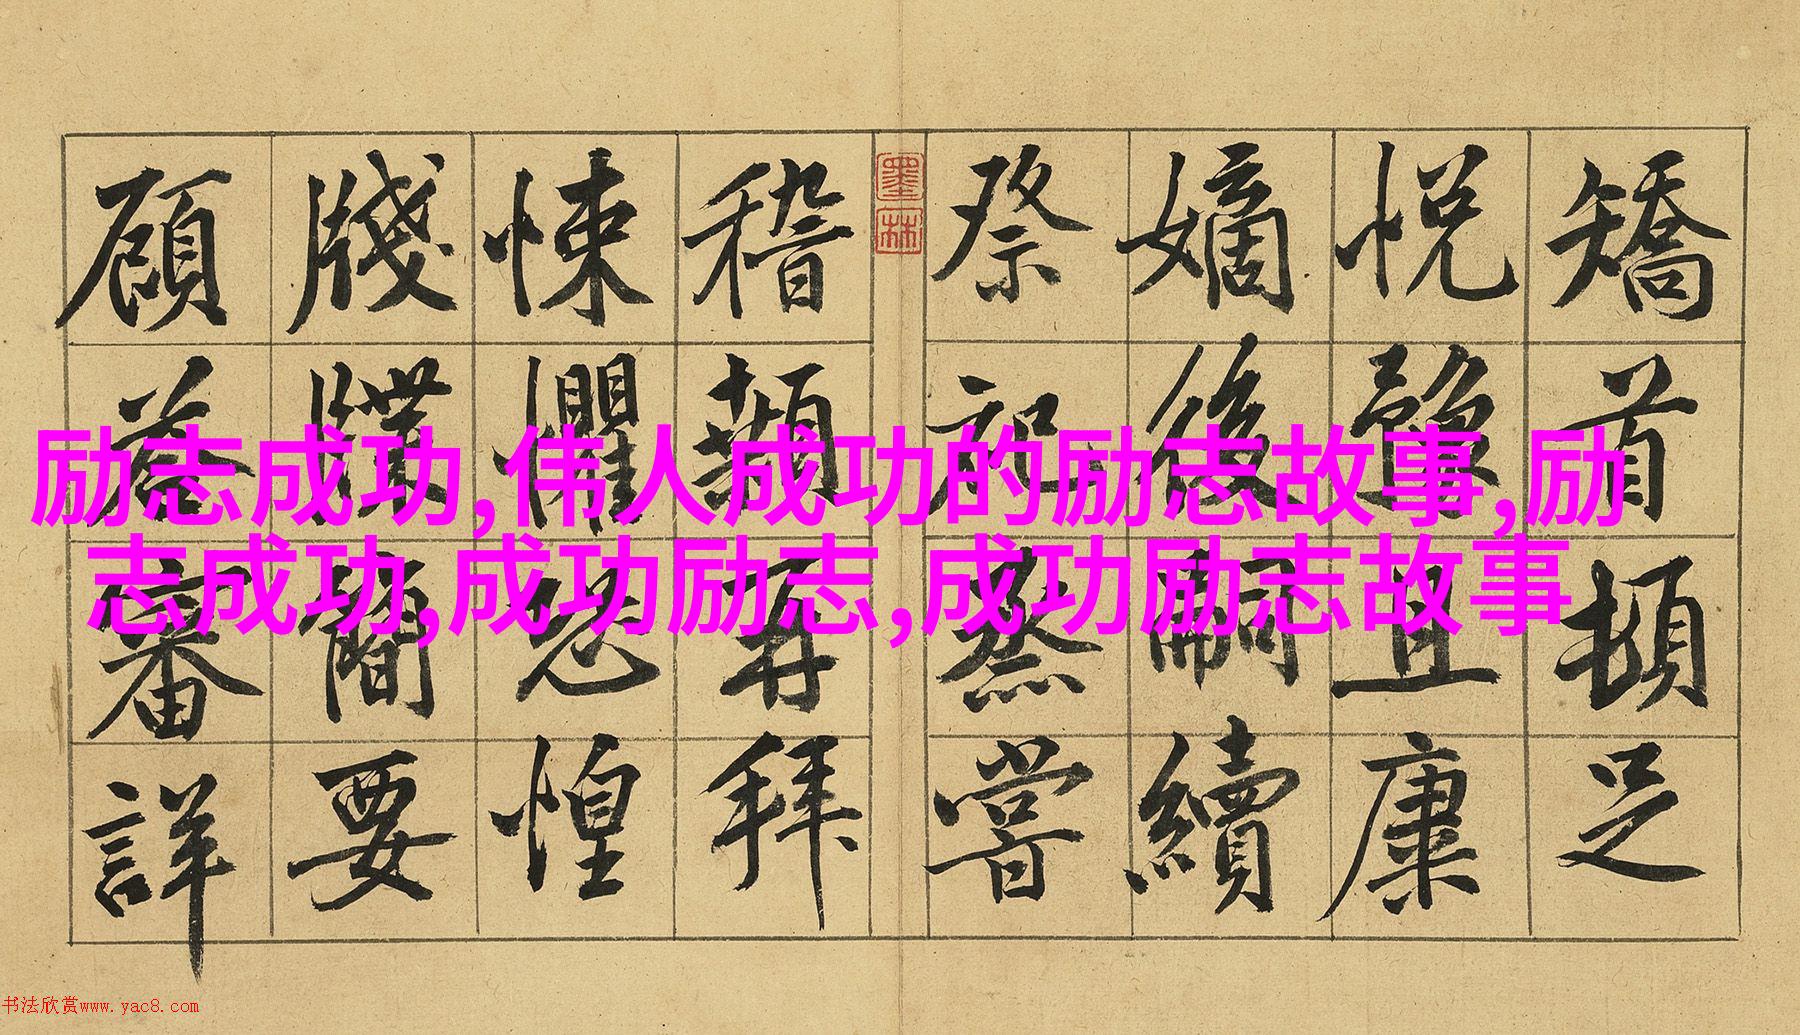 矯首頓足
悅豫且康
嫡後嗣續
祭祀蒸嘗
墨林
稽顙再拜
悚懼恐惶
牋牒簡要
顧答審詳
励志成功,伟人成功的励志故事,励
志成功,成功励志,成功励志故事
书法欣赏www.yac8.com